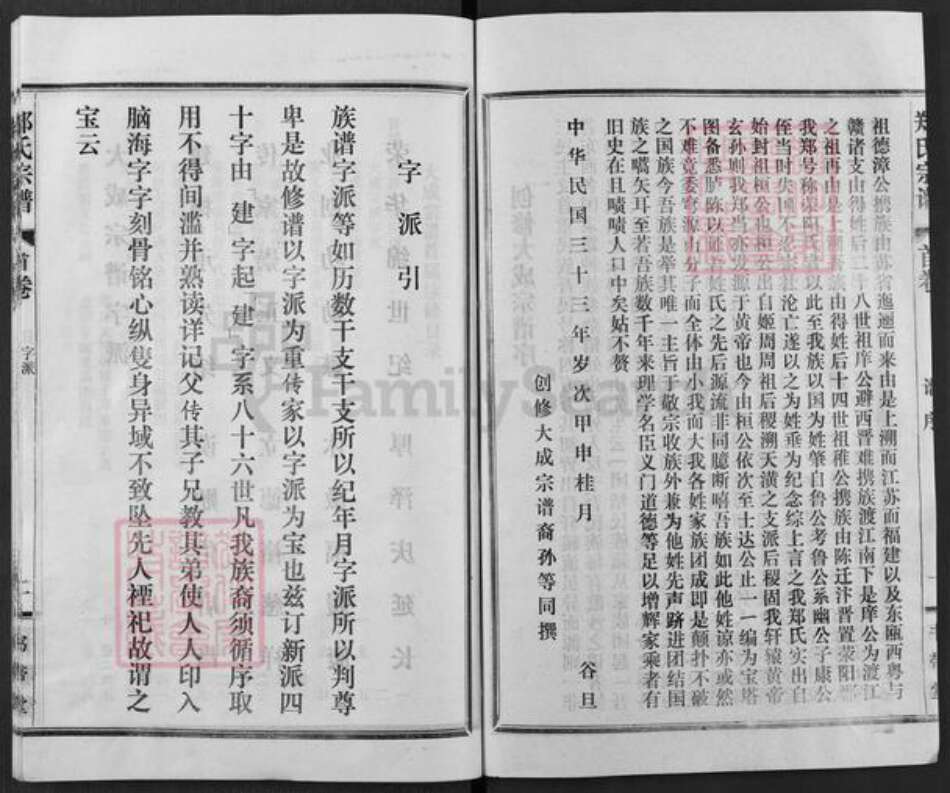 祖德漳公携族由苏省迤逦而来由是上溯而江苏而福建以及东瓯西粤与
赣诸支由得姓后二十八世祖庠公避西晋难携族渡江南下是庠公为渡江
之祖再由是上溯 族由得姓后十四世祖稚公携族由陈迁汴晋置荥阳郡
我郑号称荥阳 以此至我族以国为姓肇自鲁公考鲁公系幽公子康公
侄当时失国不忍 沦亡遂以之为姓垂为纪念综上言之我郑氏实出自
始封祖桓公也桓公出自姬周周祖后稷溯天潢之支派后稷固我轩辕黄帝
玄孙则我郑当亦发源于黄帝也今由桓公依次至士达公止一一编为宝塔
图备悉胪陈以 姓氏之先后源流非同臆断嘻吾族如此他姓谅亦或然
不难竟委穷源由分子而全体由小我而大我各姓家族团成即是颠扑不破
之国族今吾族是举其唯一主旨于敬宗收族外兼为他姓先声跻进团结国
族之嚆矢耳至若吾族数千年来理学名臣义门道德等足以增辉家乘者有
旧史在且啧啧人口中矣姑不赘
中华民国三十三年岁次甲申桂月 谷旦
创修大成宗谱裔孙等同撰
郑氏宗谱 首卷 字派 二
字派引
族谱字派等如历数干支干支所以纪年月字派所以判尊
卑是故修谱以字派为重传家以字派为宝也兹订新派四
十字由 建 字起 建 字系八十六世凡我族裔须循序取
用不得间滥并熟读详记父传其子兄教其弟使人人印入
脑海字字刻骨铭心纵隻身异域不致坠先人禋祀故谓之
宝云
FamilySearch